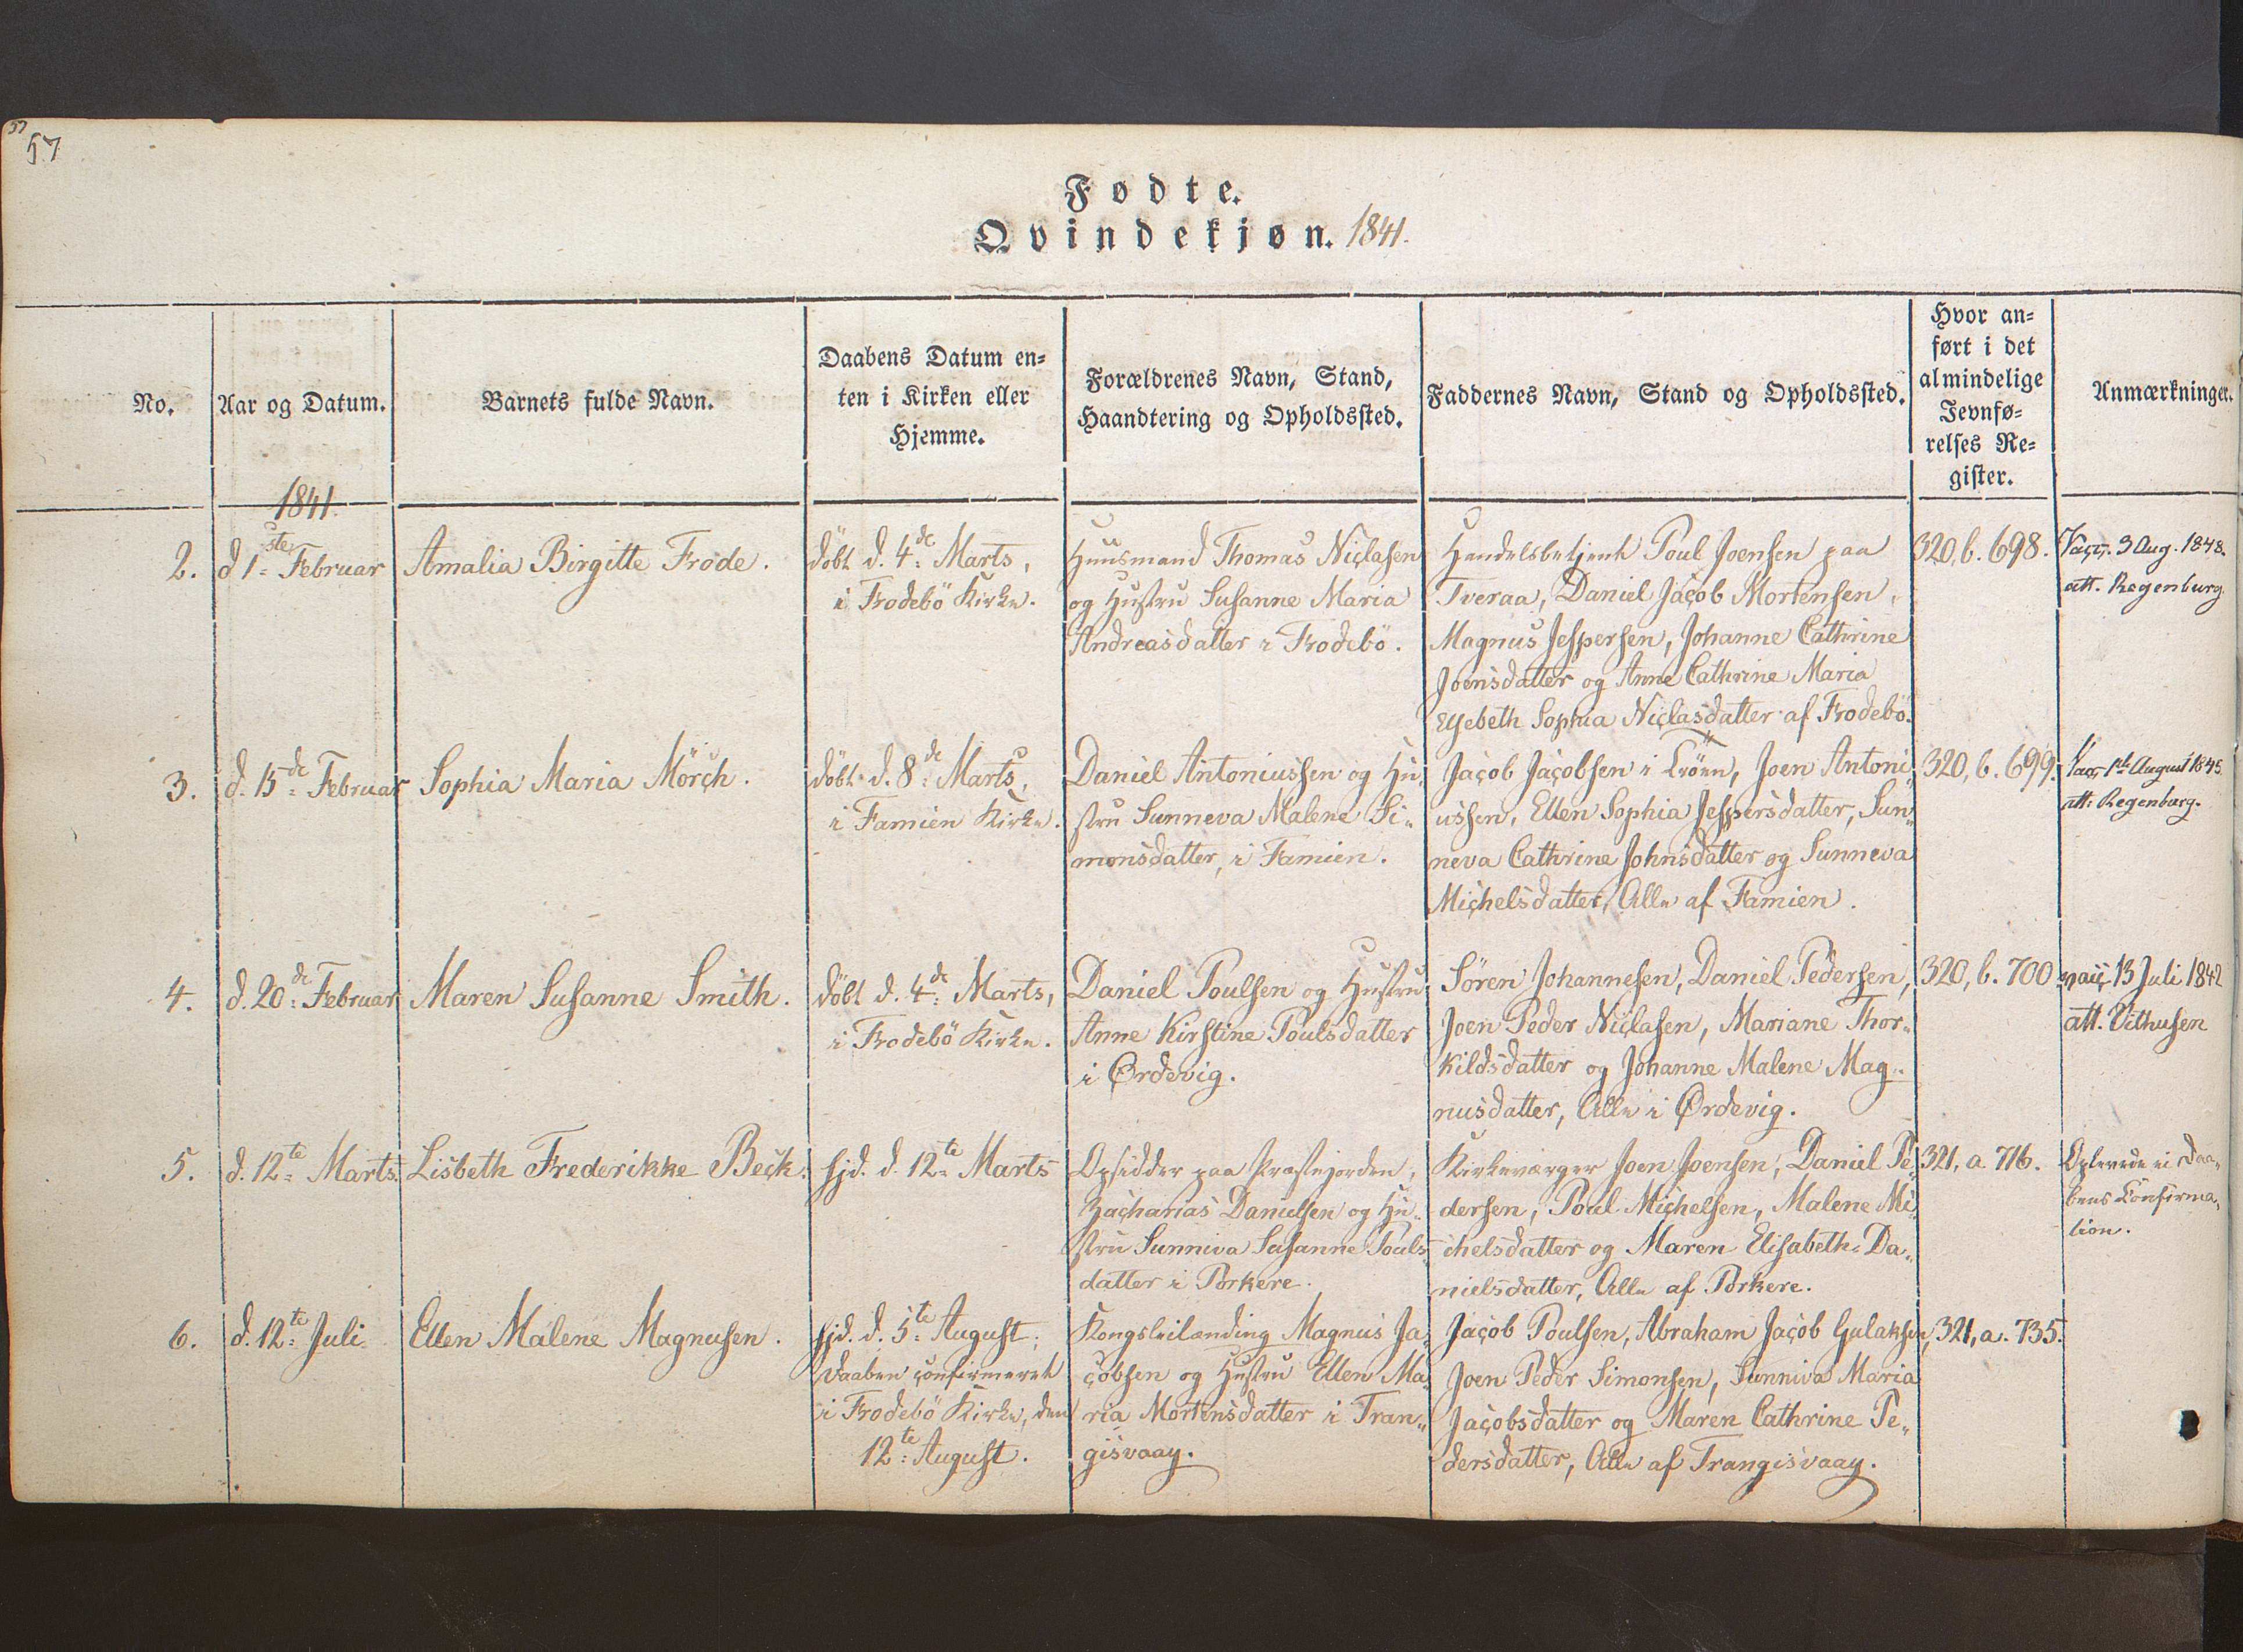 57
57
Fødte.
Qvindekjøn. 1841.
No.
Aar og Datum.
Barnets fulde Navn.
Daabens Datum en=
ten i Kirken eller
Hjemme.
Forældrenes Navn, Stand,
Haandtering og Opholdssted.
Faddernes Navn, Stand og Opholdssted.
Hvor an=
ført i det
almindelige
Jevnfø=
relses Re=
gister.
Anmærkninger.
1841.
2.
d 1ste Februar
Amalia Birgitte Frode.
döbt d. 4de Marts,
i Frodebö Kirke.
Huusmand Thomas Niclasen
og Hustru Susanne Maria
Andreasdatter i Frodebö.
Handelsbetjent Poul Joensen paa
Tveraa, Daniel Jacob Mortensen,
Magnus Jespersen, Johanne Cathrine
Joensdatter og Anne Cathrine Maria
Elsebeth Sophia Niclasdatter af Frodebö.
320, b. 698.
Vacc. 3 Aug. 1848.
att. Regenburg.
3.
d. 15de Februar
Sophia Maria Mörch.
döbt d. 8de Marts,
i Famien Kirke.
Daniel Antoniussen og Hu„
stru Sunneva Malene Si„
monsdatter, i Famien.
Jacob Jacobsen i Loo, Joen Antoni„
ussen, Ellen Sophia Jespersdatter, Sun„
neva Cathrine Johnsdatter og Sunneva
Michelsdatter, Alle af Famien.
320, b. 699.
Vacc. 1ste August 1845.
att. Regenburg.
4.
d. 20de Februar
Maren Susanne Smith.
döbt d. 4de Marts,
i Frodebö Kirke.
Daniel Poulsen og Hustru
Anne Kirstine Poulsdatter
i Ørdevig.
Sören Johannesen, Daniel Pedersen,
Joen Peder Niclasen, Mariane Thor„
kildsdatter og Johanne Malene Mag„
nusdatter, Alle i Ørdevig.
320, b. 700
vacc. 13 Juli 1842
att. Vithusen
5.
d. 12te Marts.
Lisbeth Frederikke Beck.
hjd. d. 12te Marts
Opsidder paa Præstejorden,
Zacharias Danielsen og Hu„
stru Sunniva Susanne Pouls„
datter i Porkere.
Kirkeværger Joen Joensen, Daniel Pe„
dersen, Poul Michelsen, Malene Mi„
chelsdatter og Maren Elisabeth Da„
nielsdatter, Alle af Porkere.
321, a. 716.
Oplevede ei Daa„
bens Confirma„
tion.
6.
d. 12te Juli
Ellen Malene Magnusen.
hjd. d. 5te August;
Daaben confirmeret
i Frodebö Kirke, den
12te August.
Kongsleilænding Magnus Ja„
cobsen og Hustru Ellen Ma„
ria Mortensdatter i Tran„
gisvaag.
Jacob Poulsen, Abraham Jacob Gulaksen,
Joen Peder Simonsen, Sunniva Maria
Jacobsdatter og Maren Cathrine Pe„
dersdatter, Alle af Trangisvaag.
321, a. 735.